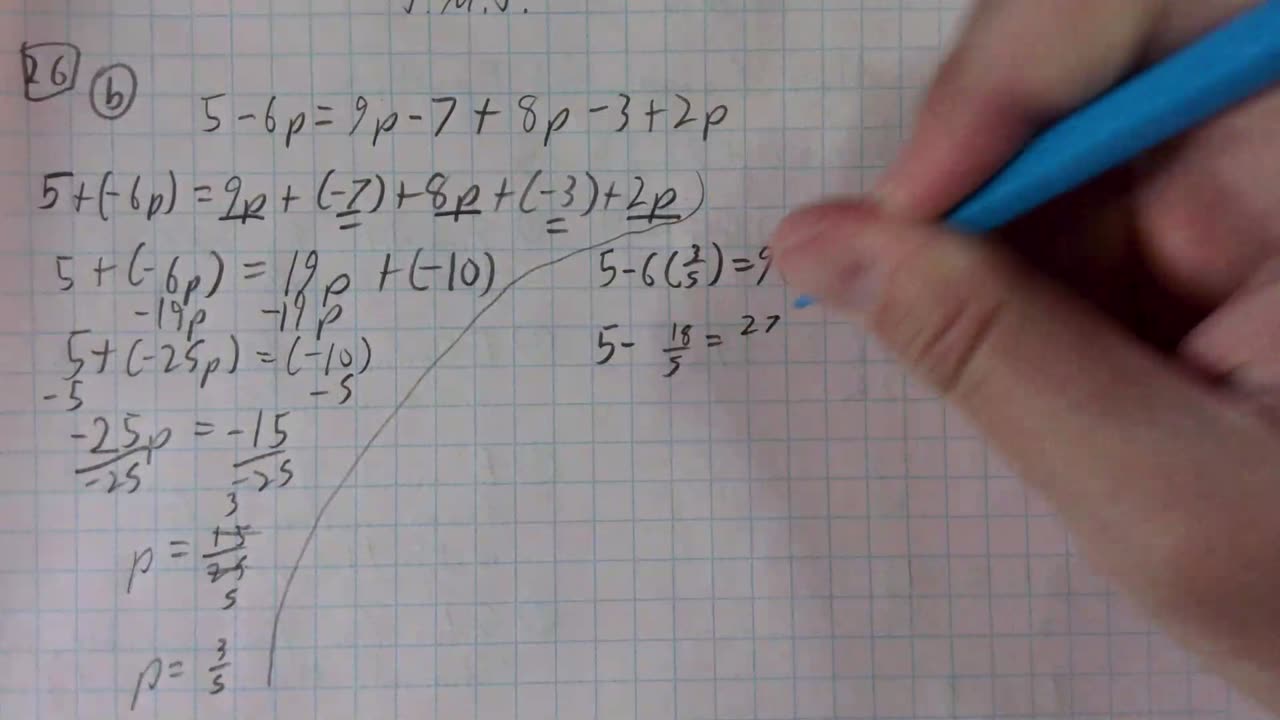 26 b
5 - 6p = 9p - 7 + 8p - 3 + 2p
5 + (-6p) = 9p + (-7) + 8p + (-3) + 2p
5 + (-6p) = 19p + (-10)
-19p -19p
5 + (-25p) = (-10)
-5 -5
-25p = -15
-25 -25
3
p = 15/25
5
p = 3/5
5 - 6(3/5) = 9
5 - 18/5 = 27